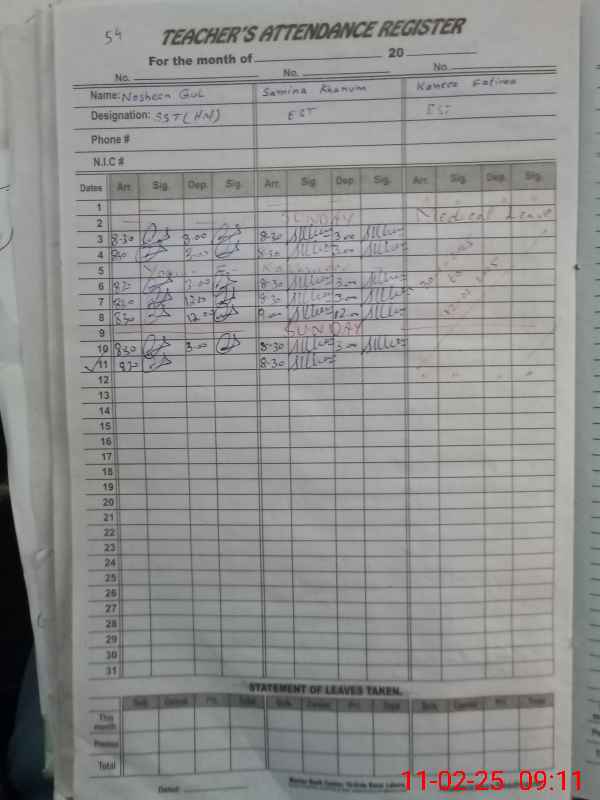 54
TEACHER'S ATTENDANCE REGISTER
For the month of 20
No. No. No.
Name: Nosheen Gul Samina Khanum Kaneez Fatima
Designation: SST(HM) EST EST
Phone #
N.I.C #
Dates Arr. Sig. Dep. Sig. Arr. Sig. Dep. Sig. Arr. Sig. Dep. Sig.
1
2 SUNDAY Medical Leave
3 8-30 3.00 8-30 3.00
4 8-30 3.00 8-30 3.00
5
6 8-30 3.00 8-30 3.00
7 8-30 12.00 8-30 3.00
8 8-30 12.00 9.00 12.00
9 SUNDAY
10 8-30 3.00 8-30 3.00
11 8-30 8-30
12
13
14
15
16
17
18
19
20
21
22
23
24
25
26
27
28
29
30
31
STATEMENT OF LEAVES TAKEN.
Sick Casual Pri. Total Sick Casual Pri. Total Sick Casual Pri. Total
This month
Previous
Total
11-02-25 09:11